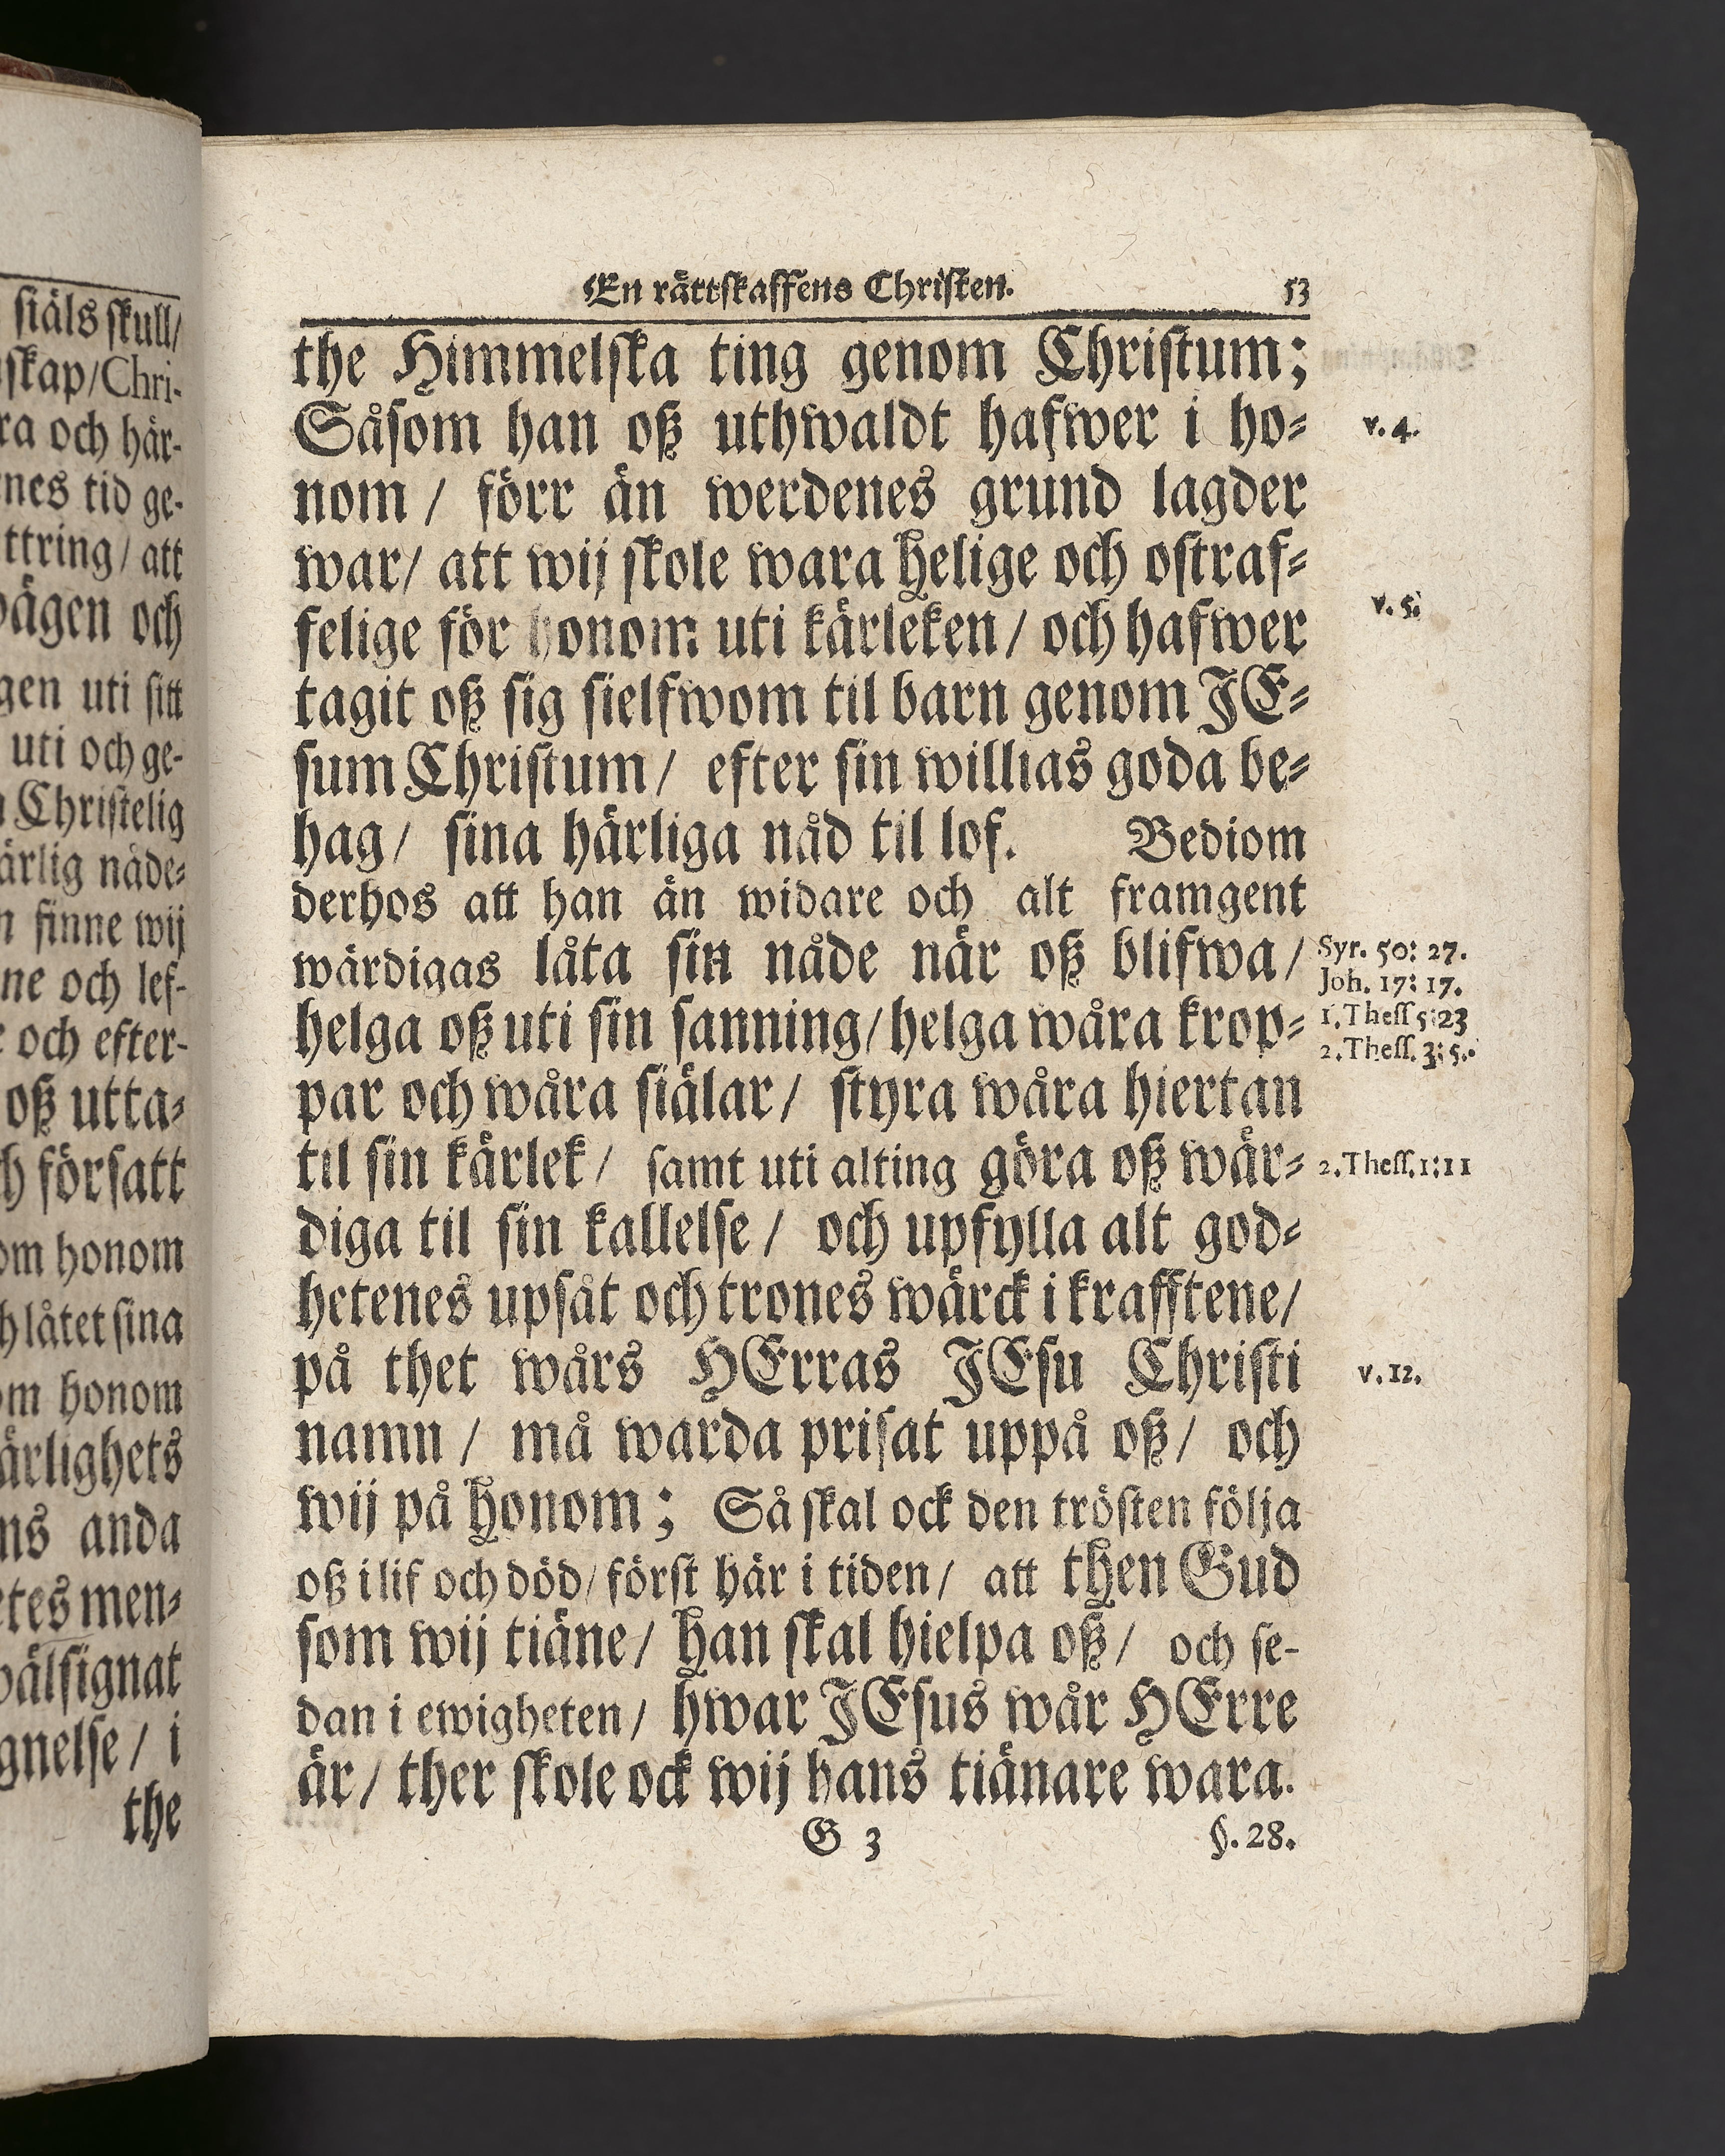 siäls skull/
skap/Chri-
ra och här-
nes tid ge-
ttring/ att
ägen och
gen uti sitt
uti och ge-
Christelig
ärlig nåde-
finne wij
ne och lef-
och efter-
oß utta-
försatt
om honom
låtet sina
om honom
ärlighets
ns anda
etes men-
wälsignat
gnelse/ i
the
En rättskaffens Christen. 53
the Himmelska ting genom Christum;
Såsom han oß uthwaldt hafwer i ho- v. 4.
nom / förr än werdenes grund lagder
war/ att wij skole wara helige och ostraf-
felige för honom uti kärleken/ och hafwer v. 5.
tagit oß sig sielfwom til barn genom JE-
sum Christum/ efter sin willias goda be-
hag/ sina härliga nåd til lof. Bediom
derhos att han än widare och alt framgent
wärdigas låta sin nåde när oß blifwa/ Syr. 50: 27.
Joh. 17: 17.
helga oß uti sin sanning/ helga wåra krop- 1. Thess 5:23
2. Thess. 3: 5.
par och wåra siälar/ styra wåra hiertan
til sin kärlek/ samt uti alting göra oß wär- 2. Thess. 1:11
diga til sin kallelse/ och upfylla alt god-
hetenes upsåt och trones wärck i krafftene/
på thet wårs HErras JEsu Christi v. 12.
namn / må warda prisat uppå oß/ och
wij på honom; Så skal ock den trösten följa
oß i lif och död/ först här i tiden/ att then Gud
som wij tiäne/ han skal hielpa oß/ och se-
dan i ewigheten/ hwar JEsus wår HErre
är/ ther skole ock wij hans tiänare wara.
G 3 §. 28.